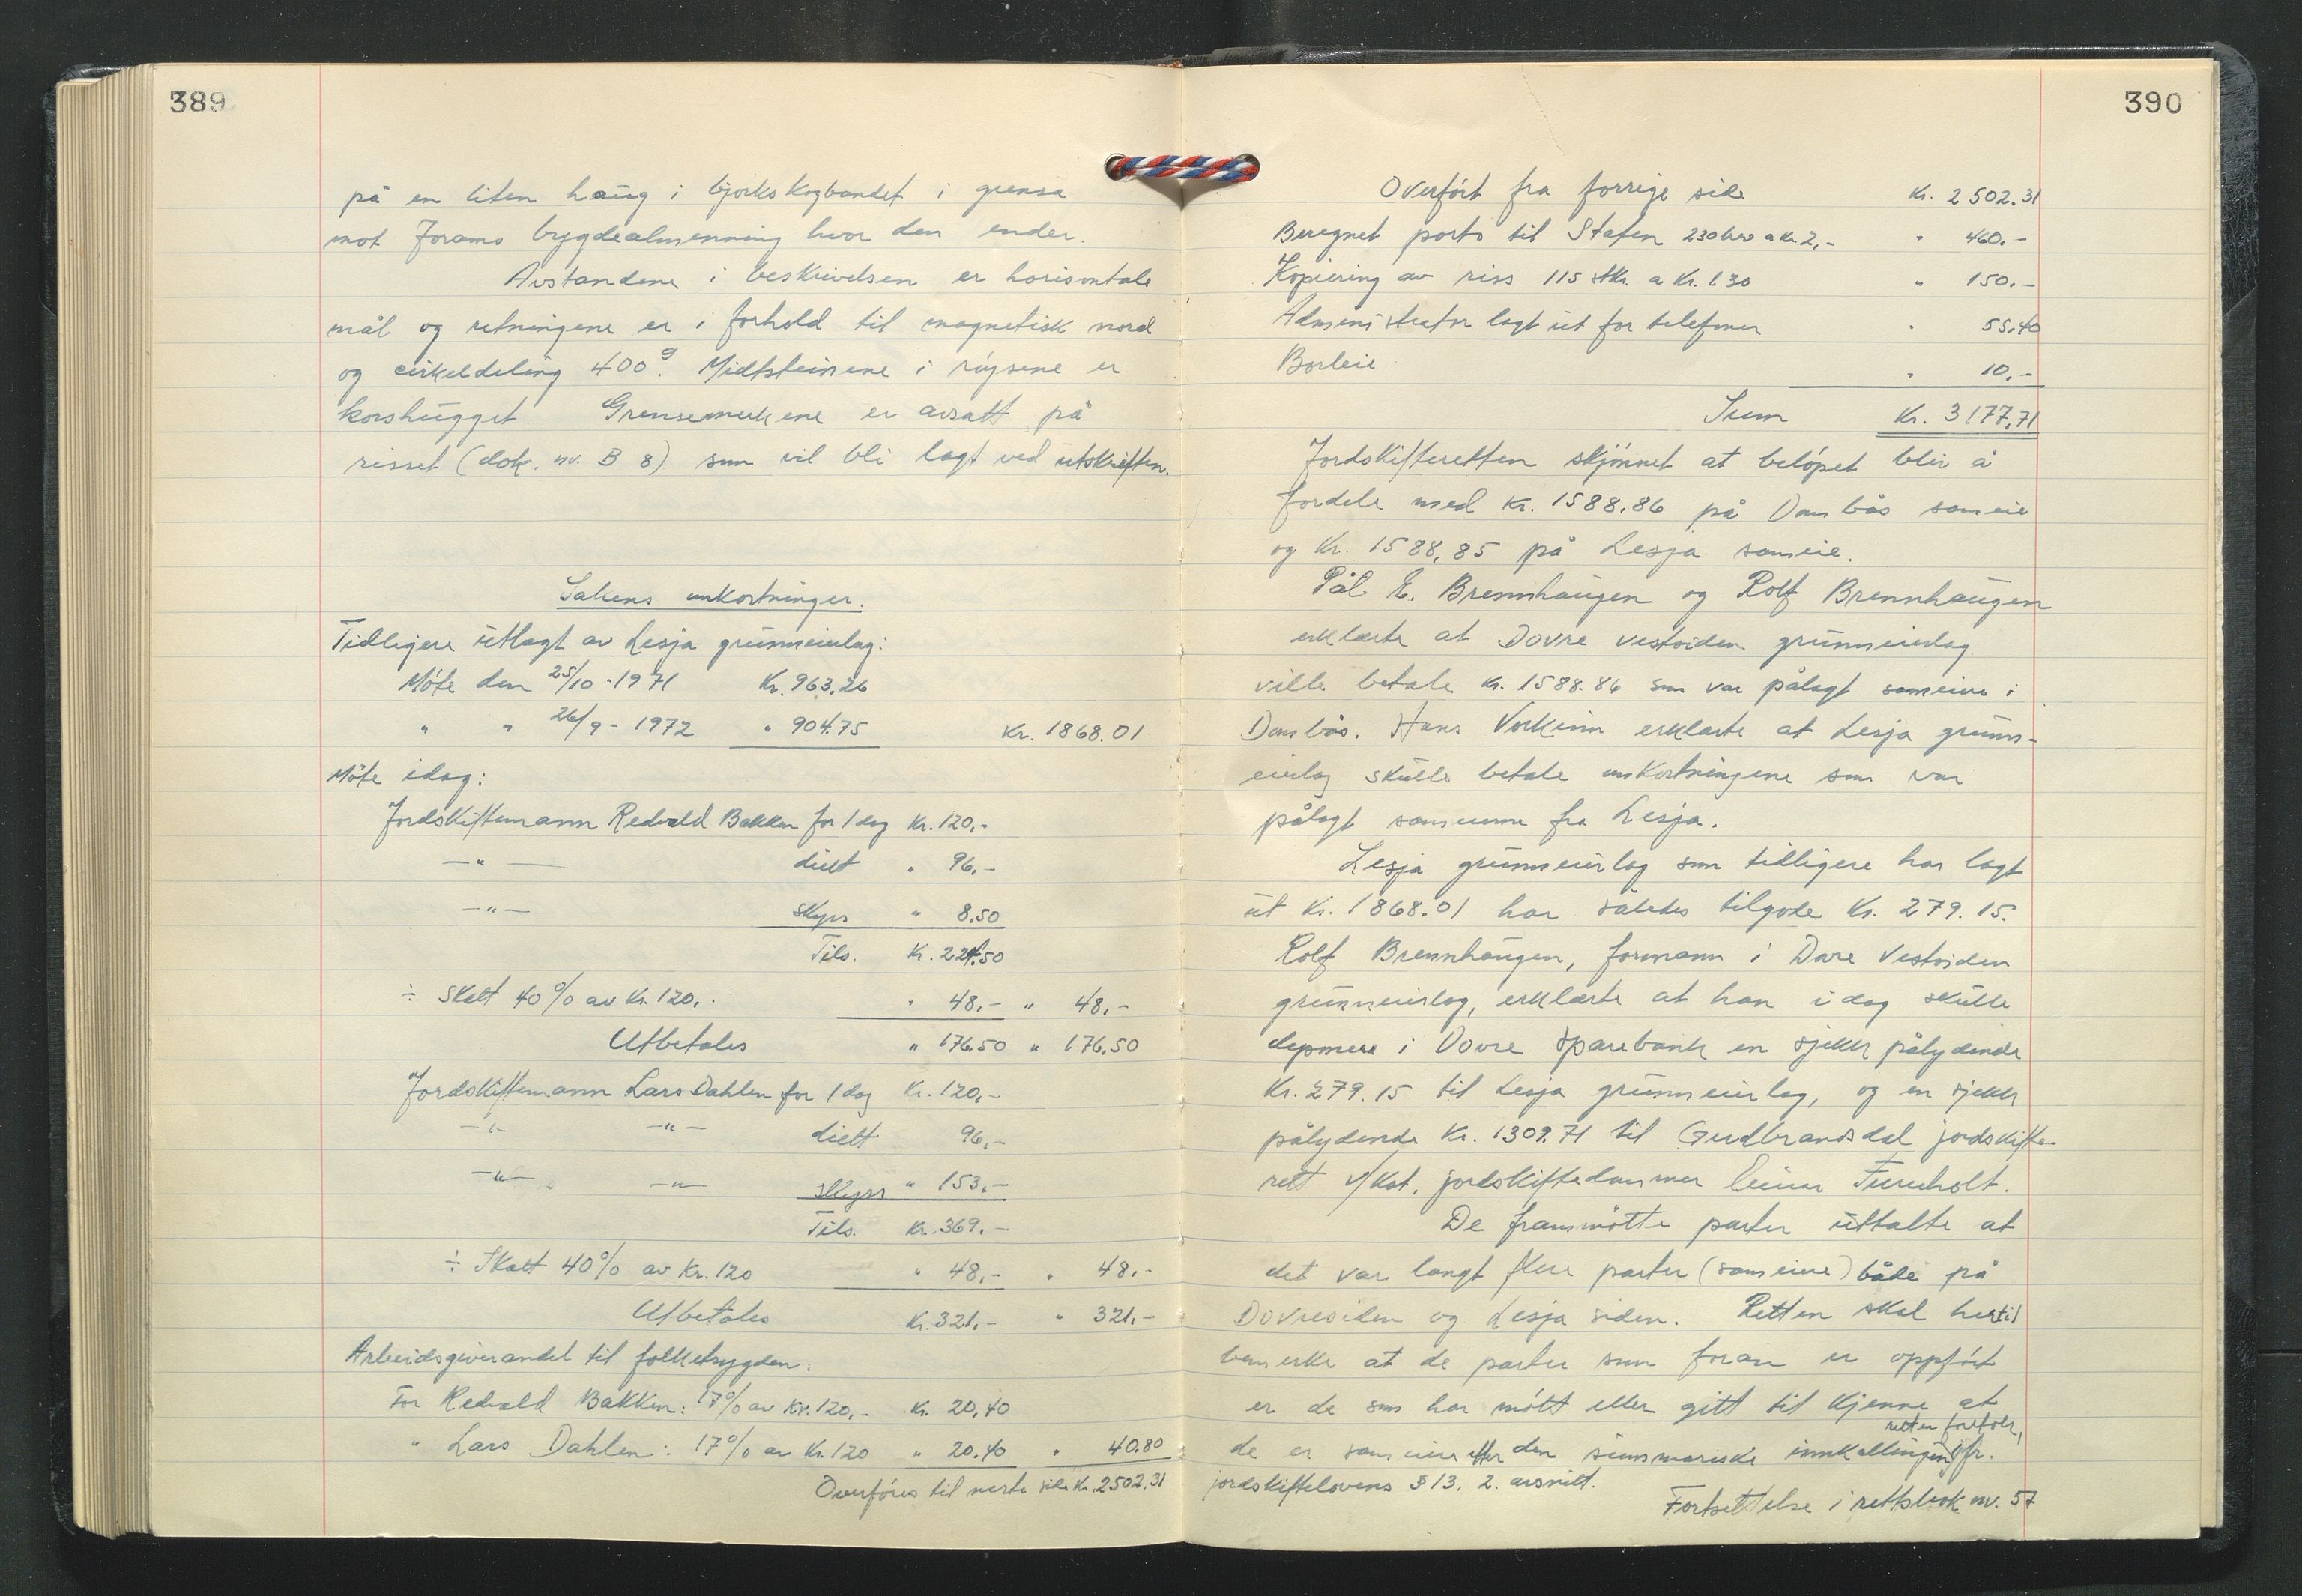 389
på en liten haug i bjørkskogbandet i grensa
mot Joramo bygdealmenning hvor den ender.
Avstandene i beskrivelsen er horisontale
mål og retningene er i forhold til magnetisk nord
og cirkeldeling 400g. Midtsteinene i røysene er
korshugget. Grensemerkene er avsatt på
risset (dok. nr. B 8) som vil bli lagt ved utskriften.
Sakens omkostninger.
Tidligere utlagt av Lesja grunneierlag:
Møte den 25/10-1971 Kr. 963,26
" " 26/9-1972 " 904.75 Kr. 1868.01
Møte idag:
Jordskiftemann Redvald Bakken for 1 dag Kr. 120,-
—"— diett " 96,-
—"— skyss " 8,50
Tils. Kr. 224,50
÷ Skatt 40% av Kr. 120,- " 48,- " 48,-
Utbetales " 176,50 " 176,50
Jordskiftemann Lars Dahlen for 1 dag Kr. 120,-
—"— —"— diett 96,-
—"— —"— skyss " 153,-
Tils. Kr. 369,-
÷ Skatt 40% av Kr. 120 " 48,- " 48,-
Utbetales Kr. 321,- " 321,-
Arbeidsgiverandel til folketrygden:
For Redvald Bakken: 17% av Kr. 120,- Kr. 20,40
" Lars Dahlen: 17% av Kr. 120 " 20.40 " 40.80
Overføres til neste side Kr. 2502,31
390
Overført fra forrige side Kr. 2502.31
Beregnet porto til Staten 230 brev a kr. 2,- " 460,-
Kopiering av riss 115 stk. a Kr. 1.30 " 150,-
Administrator lagt ut for telefoner " 55,40
Borleie " 10,-
Sum Kr. 3177,71
Jordskifteretten skjønnet at beløpet blir å
fordele med Kr. 1588,86 på Dombås sameie
og Kr. 1588,85 på Lesja sameie.
Pål E. Brennhaugen og Rolf Brennhaugen
erklærte at Dovre vestsiden grunneierlag
ville betale Kr. 1588.86 som var pålagt sameiere i
Dombås. Hans Vorkinn erklærte at Lesja grunn-
eierlag skulle betale omkostningene som var
pålagt sameierne fra Lesja.
Lesja grunneierlag som tidligere har lagt
ut Kr. 1868.01 har således tilgode Kr. 279.15.
Rolf Brennhaugen, formann i Dovre Vestsiden
grunneierlag, erklærte at han idag skulle
deponere i Dovre Sparebank en sjekk pålydende
Kr. 279.15 til Lesja grunneierlag, og en sjekk
pålydende Kr. 1309.71 til Gudbrandsdal jordskifte-
rett v/kst. jordskiftedommer Einar Furuholt.
De frammøtte parter uttalte at
det var langt flere parter (sameiere) både på
Dovresiden og Lesja siden. Retten skal hertil
bemerke at de parter som foran er oppført
er de som har møtt eller gitt til kjenne at
de er sameiere etter den summariske innkallingen retten foretok, jfr.
jordskiftelovens § 13, 2. avsnitt.
Fortsettelse i rettsbok nr. 57